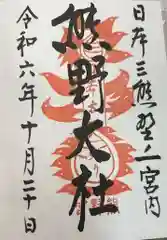 日本三熊野ノ一宮内
熊野大社
令和六年十月二十日